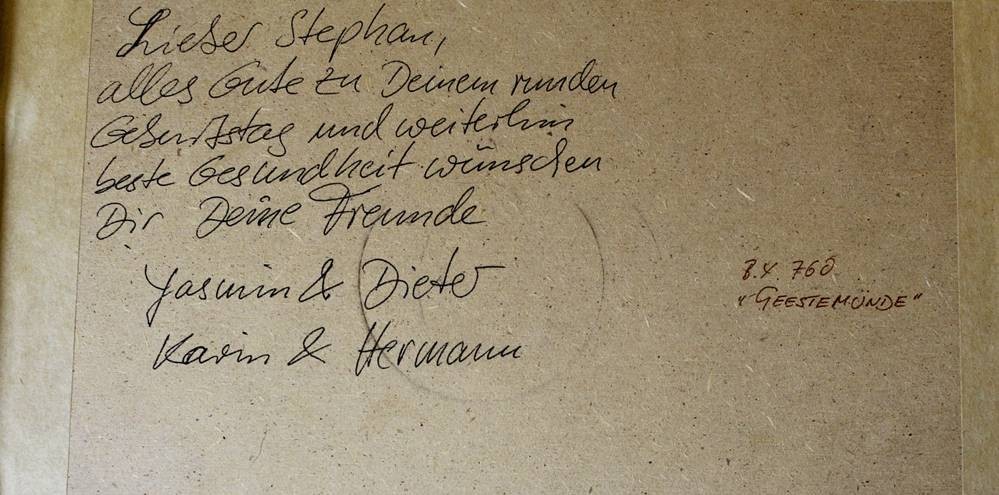 Lieber Stephan,
alles Gute zu Deinem runden
Geburtstag und weiterhin
beste Gesundheit wünschen
Dir Deine Freunde
Yasmin & Dieter
Karin & Hermann
"GEESTEMÜNDE"